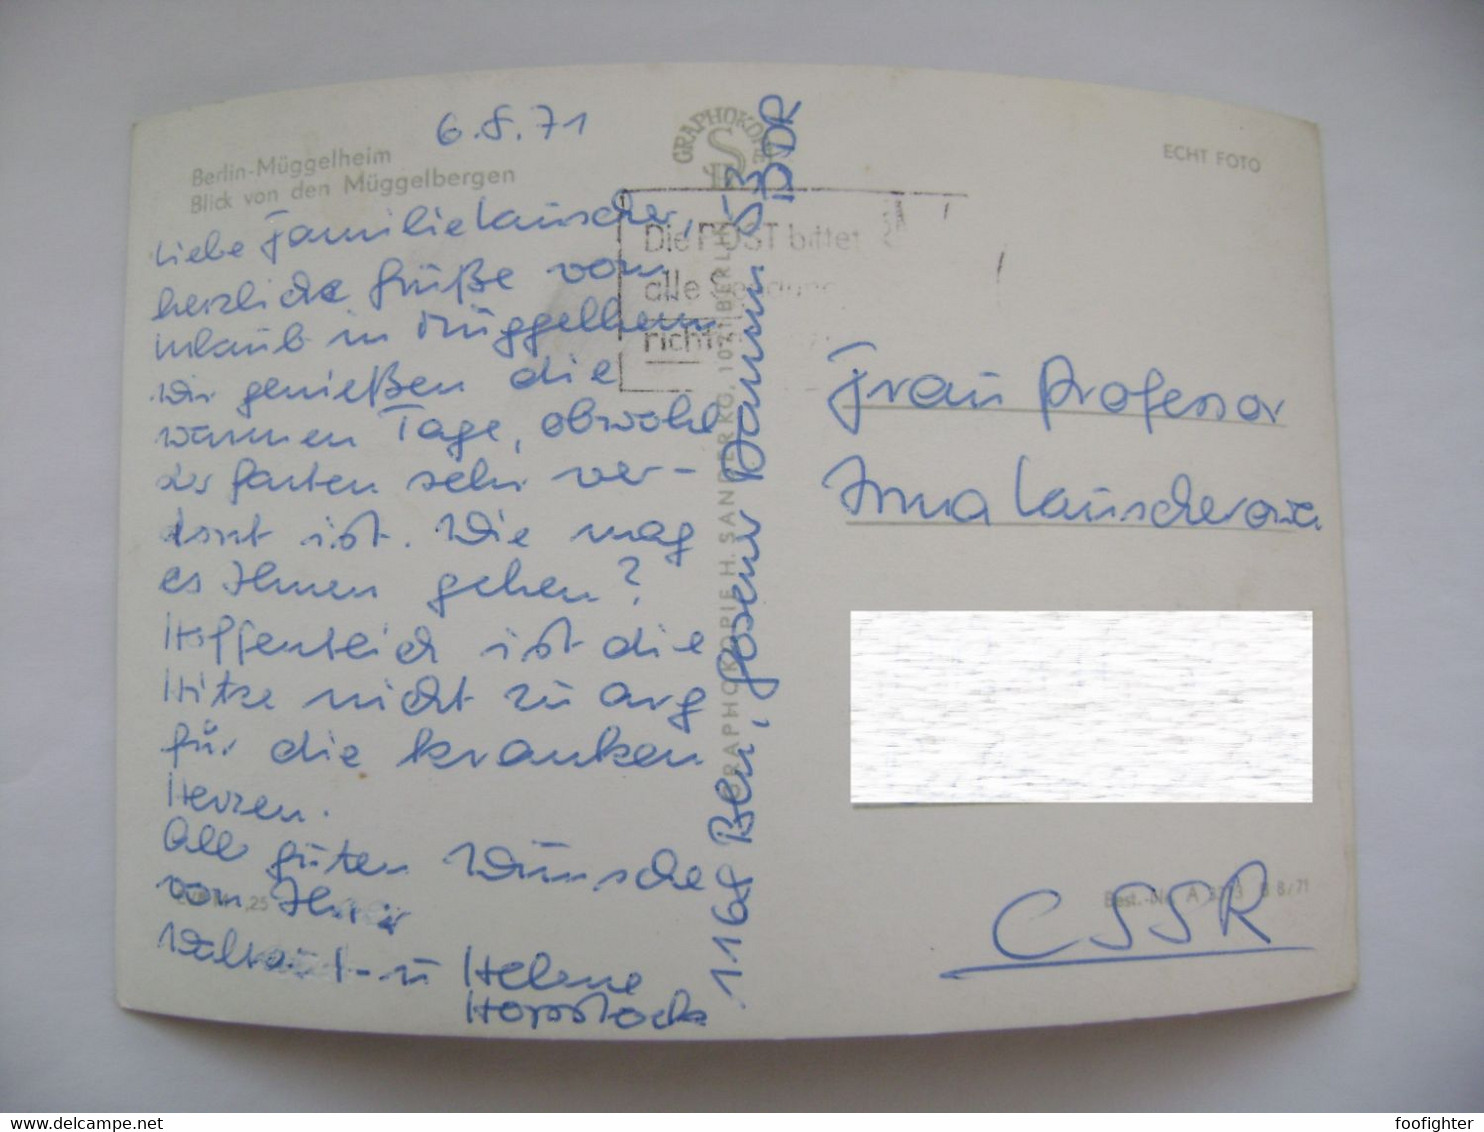 6.8.71
Berlin-Müggelheim
Blick von den Müggelbergen
Liebe Familie Lauscher,
herzliche Grüße vom
Urlaub in Müggelheim
Wir genießen die
warmen Tage, obwohl
der Garten sehr ver-
dorrt ist. Wie mag
es Ihnen gehen?
Hoffentlich ist die
Hitze nicht zu arg
für die kranken
Herzen.
Alle guten Wünsche
von Ihrer
Waltraut u Helene
GRAPHOKOPIE
Die POST bittet
alle
richt
GRAPHOKOPIE H. SANDER KG, 1071 BERLIN
1168 Bln, Gosener Damm 53
DDR
ECHT FOTO
Frau Professor
Irma Lauscherova
CSSR
Best.-Nr. A B 8/71
foofighter